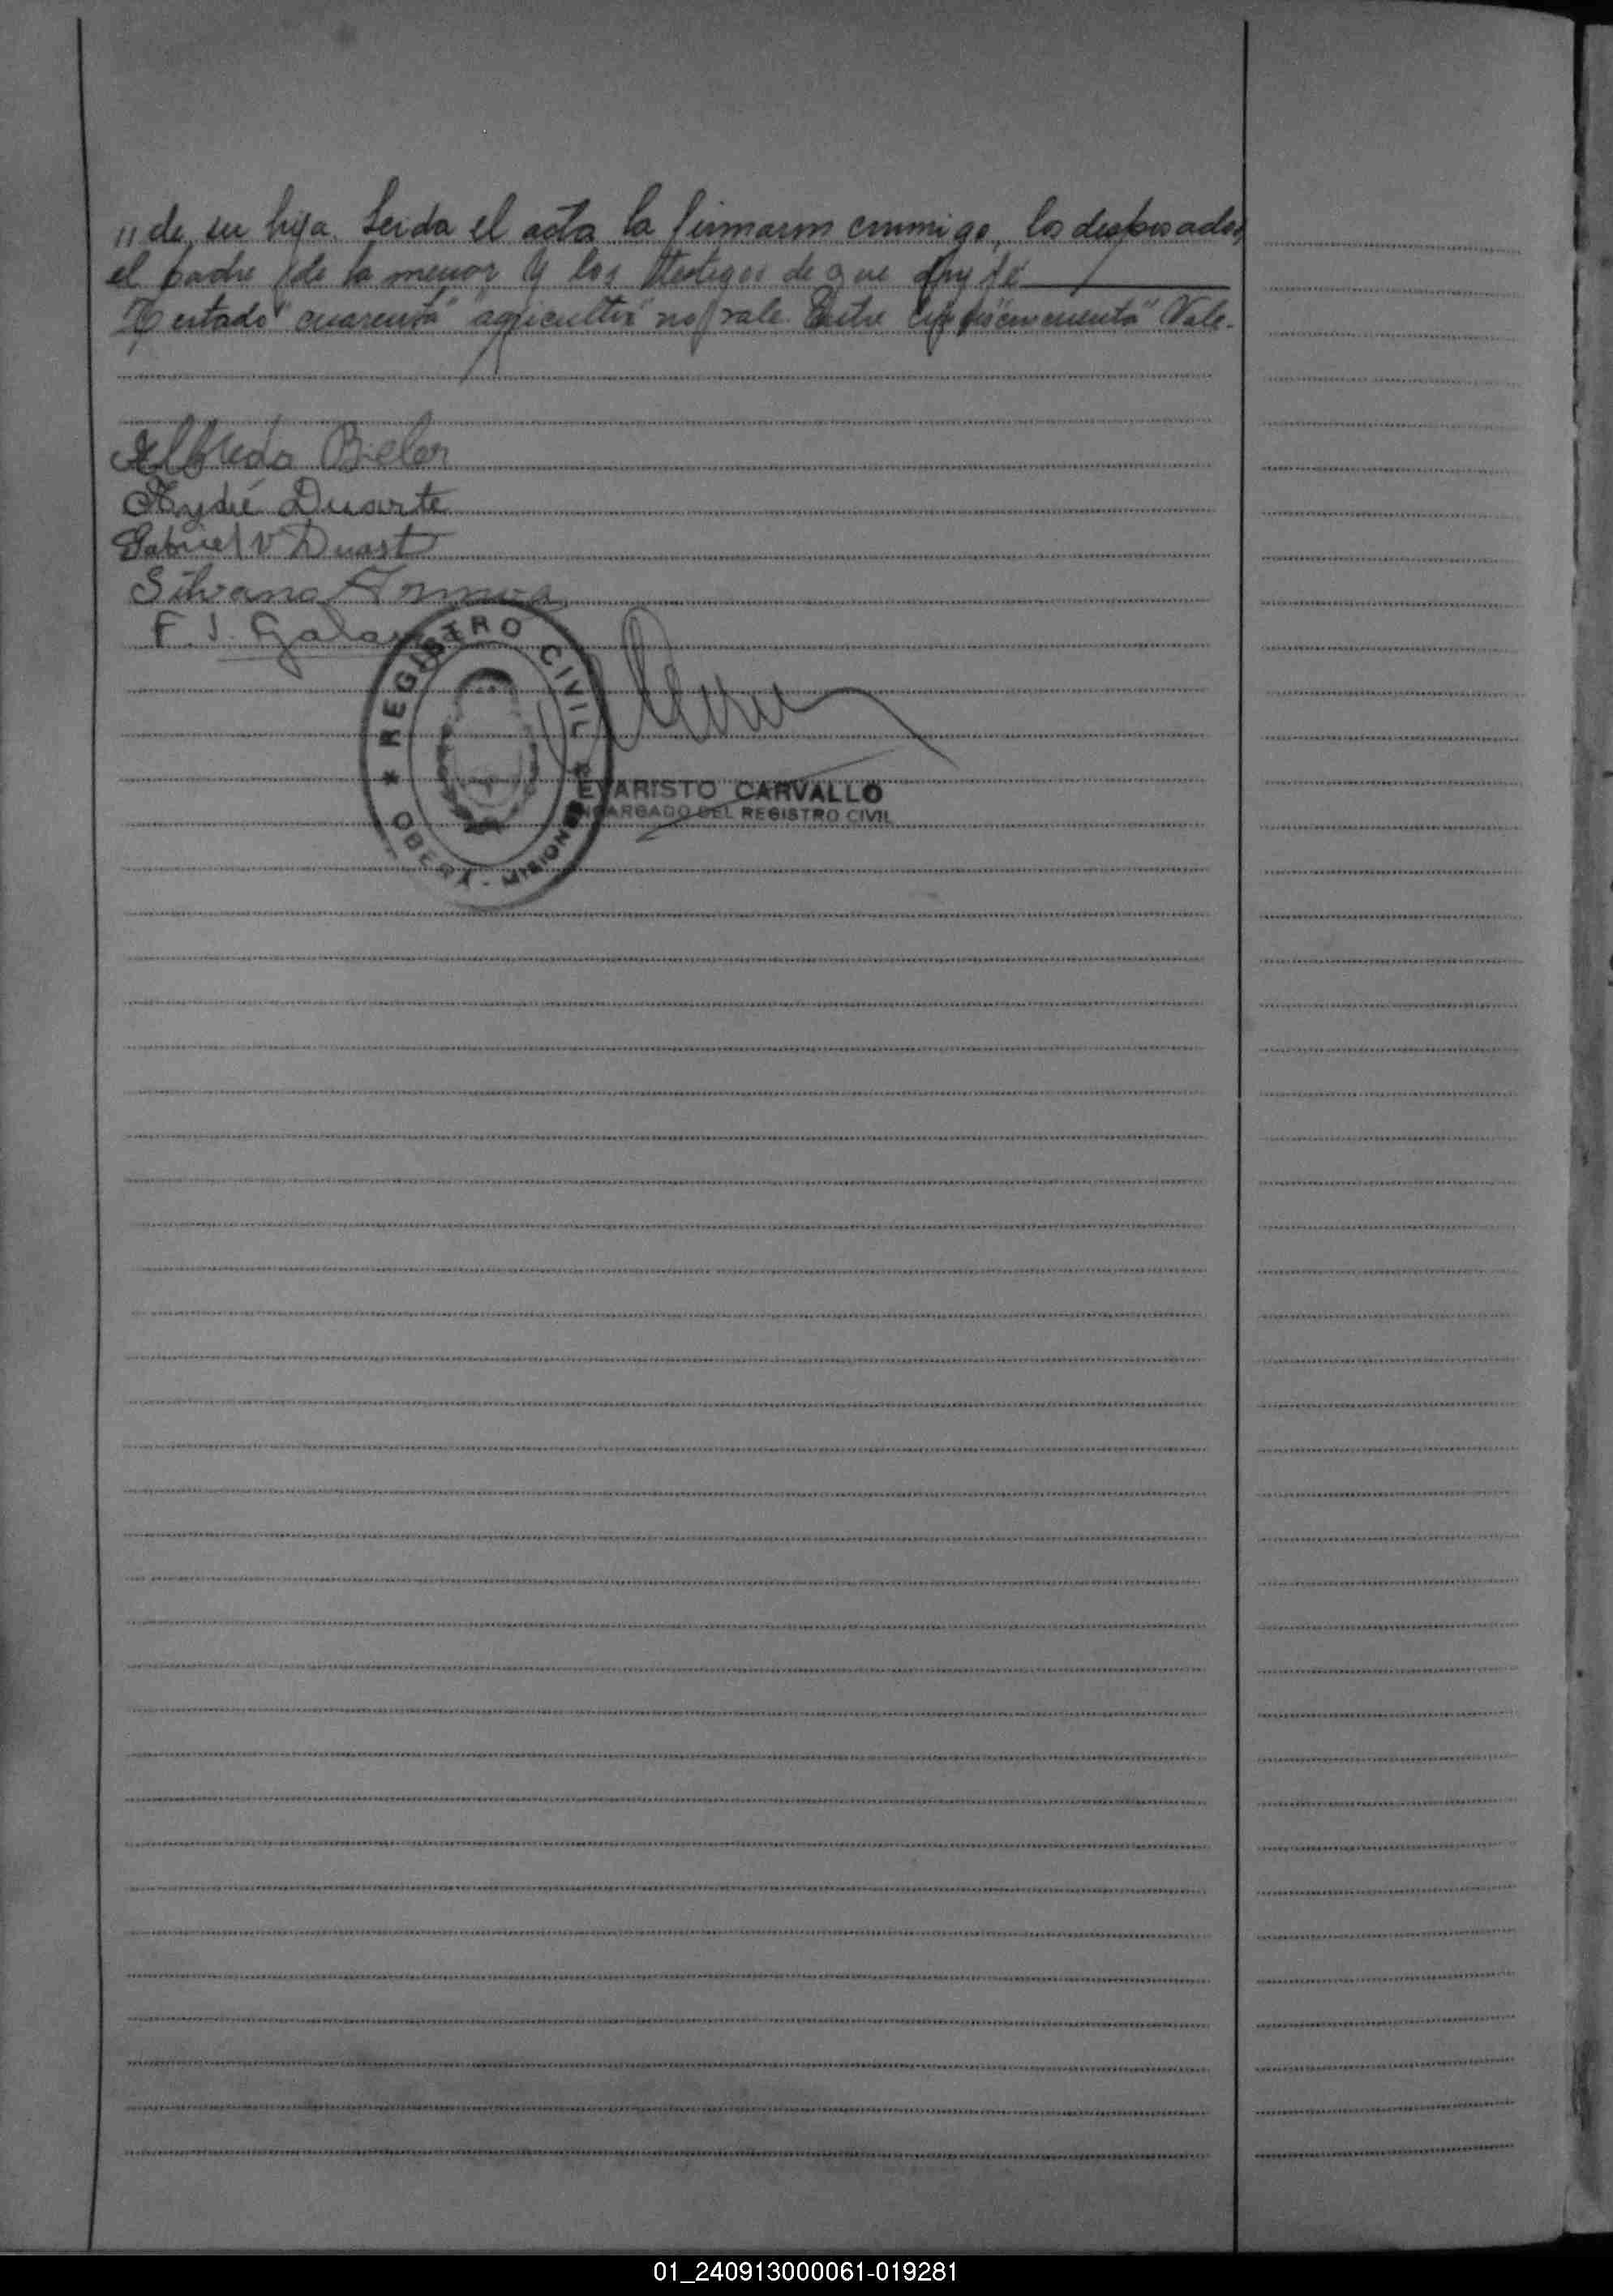 // de su hija. Leida el acta la firmaron conmigo, los desposados,
el padre de la menor y los testigos de que doy fé
Testado "cuarenta" "agricultor" no vale. Entre "cincuenta" Vale.
Alfredo Bieler
Aydeé Duarte
Gabriel V Duarte
Silvano
F. J.
REGISTRO CIVIL
OBERA - MISIONES
EVARISTO CARVALLO
ENCARGADO DEL REGISTRO CIVIL
01_240913000061-019281